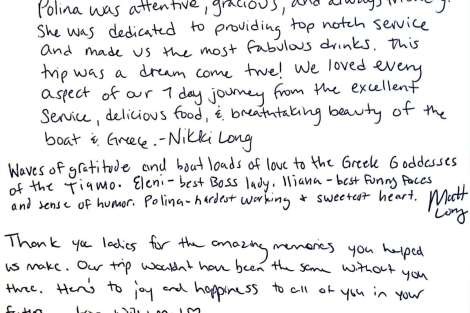 Polina was attentive, gracious, and always
She was dedicated to providing top notch service
and made us the most fabulous drinks. This
trip was a dream come true! We loved every
aspect of our 7 day journey from the excellent
Service, delicious food, & breathtaking beauty of the
boat & Greece. - Nikki Long
Waves of gratitude and boat loads of love to the Greek Goddesses
of the Tiamo. Eleni - best Boss lady. Iliana - best funny faces
and sense of humor. Polina - hardest working & sweetest heart. Matt
Long
Thank you ladies for the amazing memories you helped
us make. Our trip wouldn't have been the same without you
three. Here's to joy and happiness to all of you in your